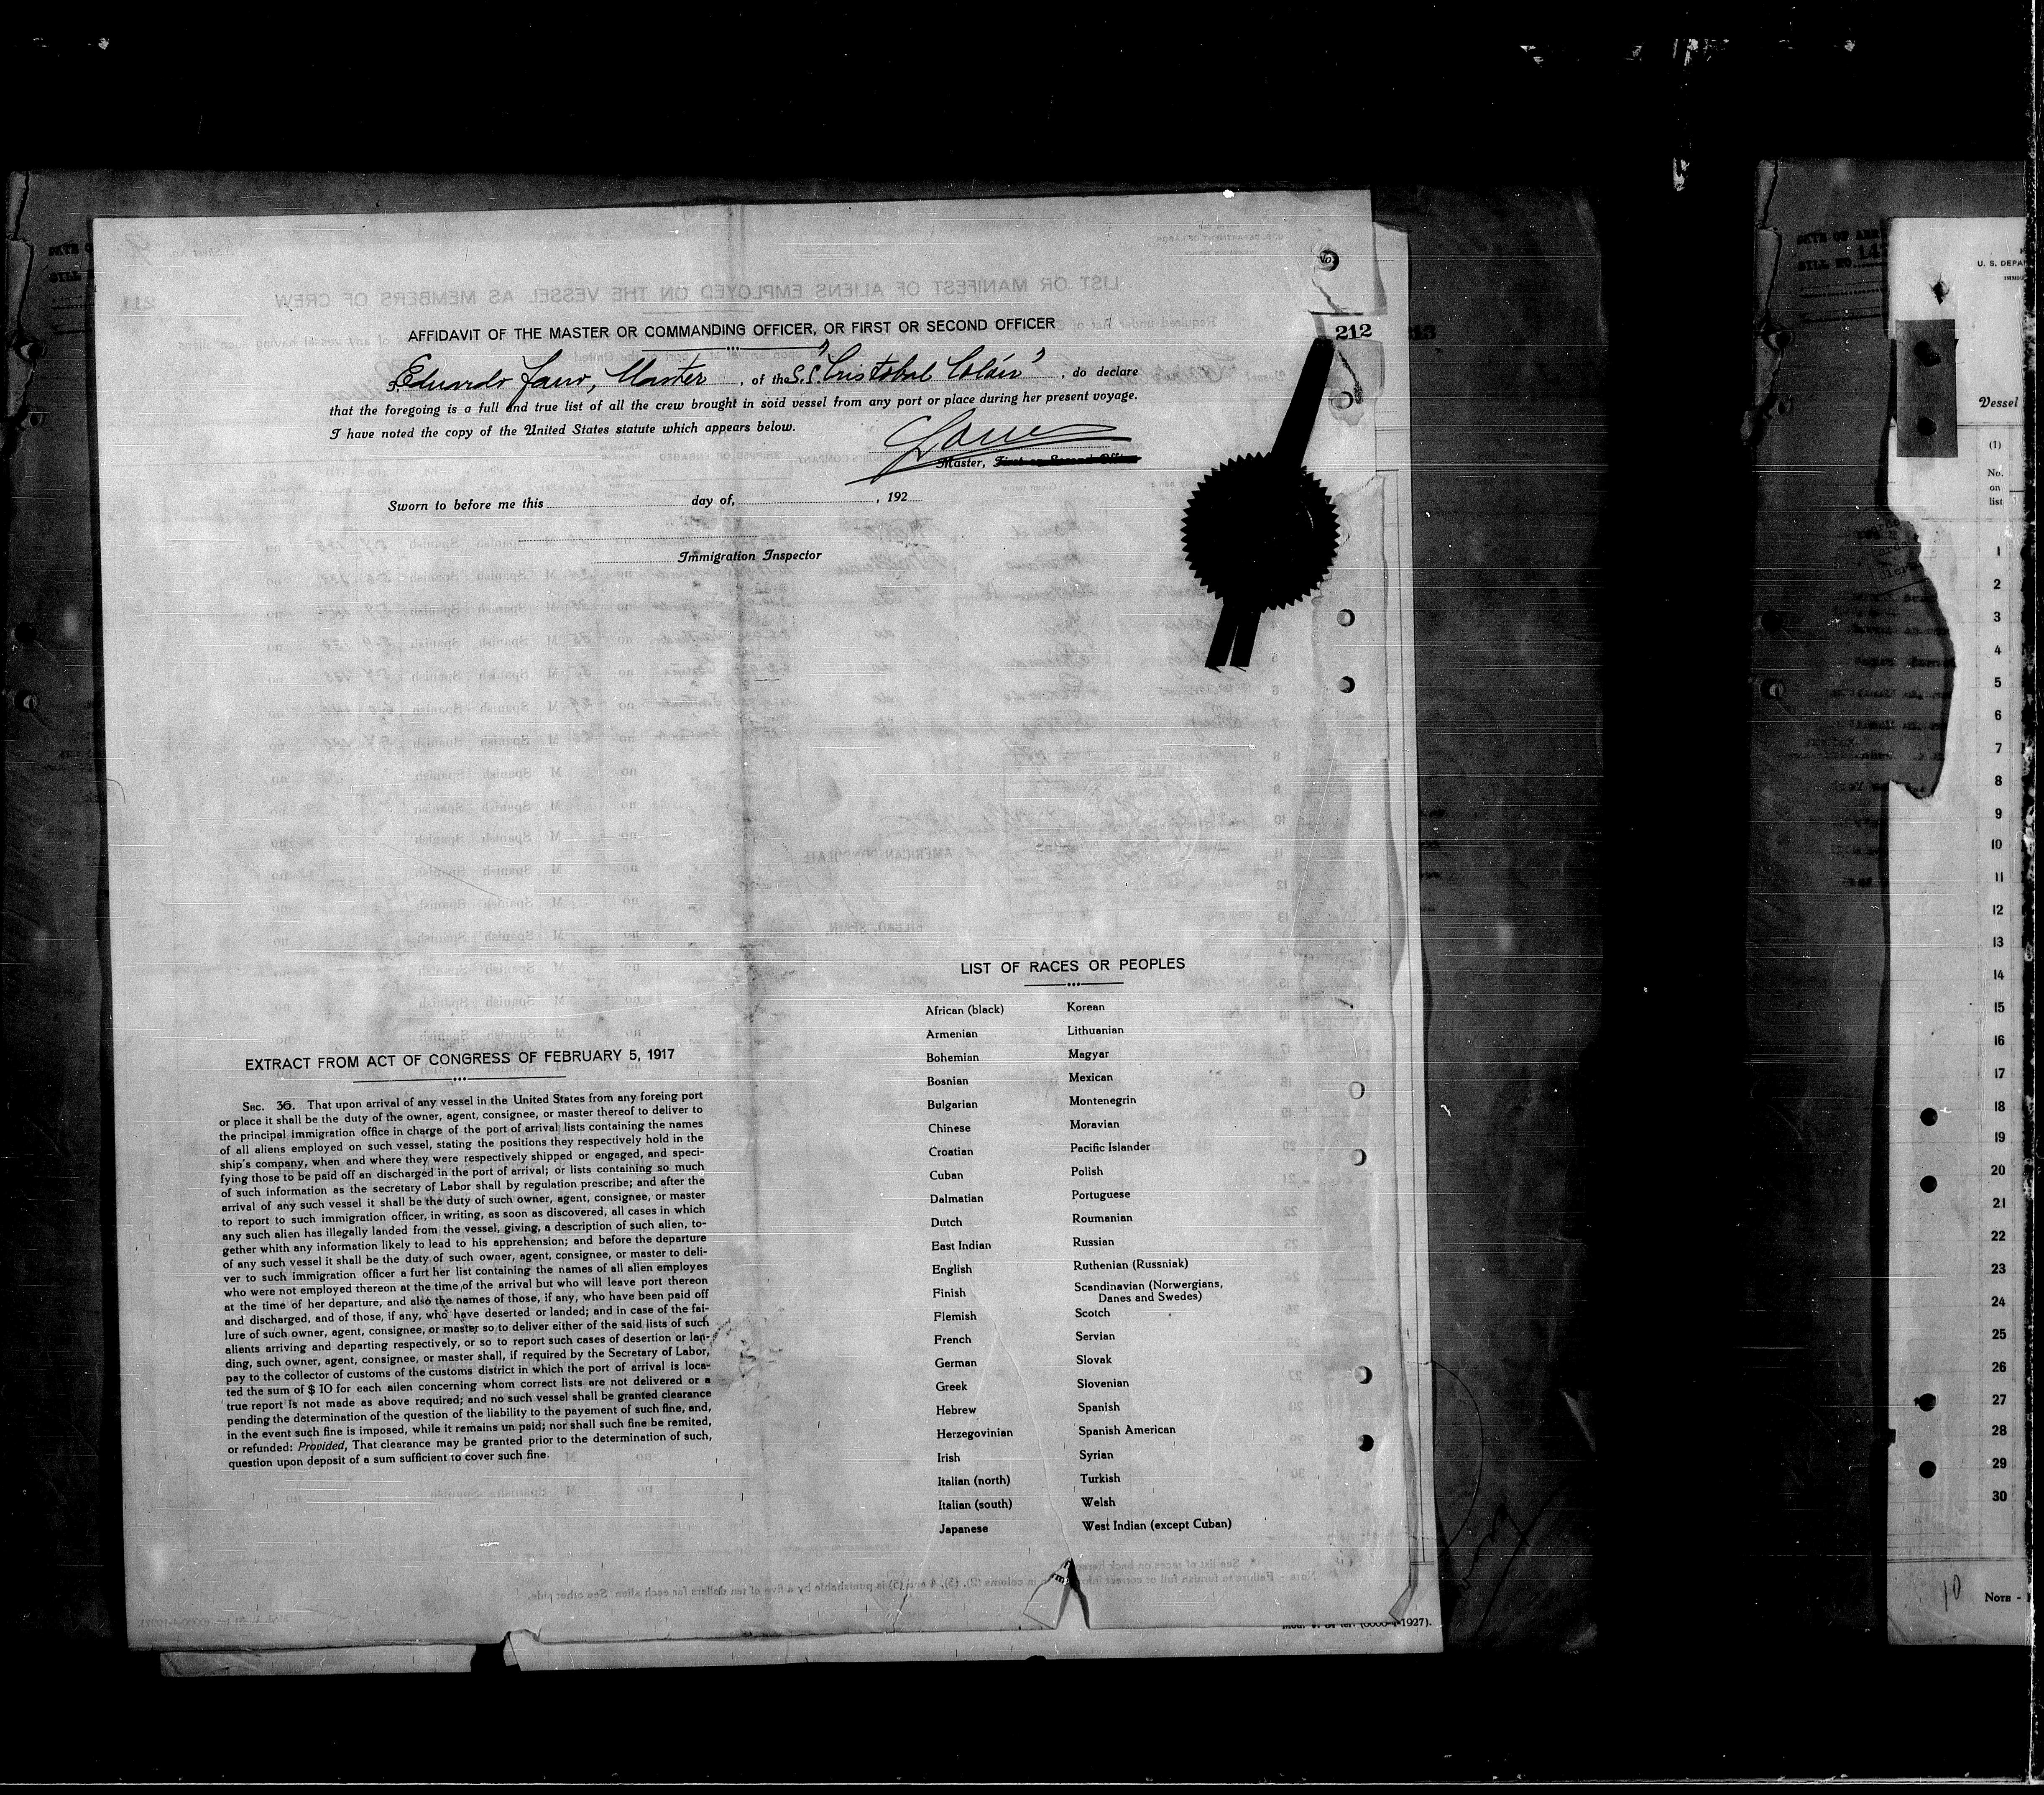 212
AFFIDAVIT OF THE MASTER OR COMMANDING OFFICER, OR FIRST OR SECOND OFFICER
Eduardo Fano, Master, of the S.S. "Cristobal Colón", do declare
that the foregoing is a full and true list of all the crew brought in soid vessel from any port or place during her present voyage.
I have noted the copy of the United States statute which appears below.
Master, First or Second Officer
Sworn to before me this day of, , 192
Immigration Inspector
EXTRACT FROM ACT OF CONGRESS OF FEBRUARY 5, 1917
SEC. 36. That upon arrival of any vessel in the United States from any foreing port
or place it shall be the duty of the owner, agent, consignee, or master thereof to deliver to
the principal immigration office in charge of the port of arrival lists containing the names
of all aliens employed on such vessel, stating the positions they respectively hold in the
ship's company, when and where they were respectively shipped or engaged, and speci-
fying those to be paid off an discharged in the port of arrival; or lists containing so much
of such information as the secretary of Labor shall by regulation prescribe; and after the
arrival of any such vessel it shall be the duty of such owner, agent, consignee, or master
to report to such immigration officer, in writing, as soon as discovered, all cases in which
any such alien has illegally landed from the vessel, giving, a description of such alien, to-
gether whith any information likely to lead to his apprehension; and before the departure
of any such vessel it shall be the duty of such owner, agent, consignee, or master to deli-
ver to such immigration officer a furt her list containing the names of all alien employes
who were not employed thereon at the time of the arrival but who will leave port thereon
at the time of her departure, and also the names of those, if any, who have been paid off
and discharged, and of those, if any, who have deserted or landed; and in case of the fai-
lure of such owner, agent, consignee, or master so to deliver either of the said lists of such
alients arriving and departing respectively, or so to report such cases of desertion or lan-
ding, such owner, agent, consignee, or master shall, if required by the Secretary of Labor,
pay to the collector of customs of the customs district in which the port of arrival is loca-
ted the sum of $ 10 for each ailen concerning whom correct lists are not delivered or a
true report is not made as above required; and no such vessel shall be granted clearance
pending the determination of the question of the liability to the payement of such fine, and,
in the event such fine is imposed, while it remains un paid; nor shall such fine be remited,
or refunded: Provided, That clearance may be granted prior to the determination of such,
question upon deposit of a sum sufficient to cover such fine.
LIST OF RACES OR PEOPLES
African (black)
Armenian
Bohemian
Bosnian
Bulgarian
Chinese
Croatian
Cuban
Dalmatian
Dutch
East Indian
English
Finish
Flemish
French
German
Greek
Hebrew
Herzegovinian
Irish
Italian (north)
Italian (south)
Japanese
Korean
Lithuanian
Magyar
Mexican
Montenegrin
Moravian
Pacific Islander
Polish
Portuguese
Roumanian
Russian
Ruthenian (Russniak)
Scandinavian (Norwergians,
Danes and Swedes)
Scotch
Servian
Slovak
Slovenian
Spanish
Spanish American
Syrian
Turkish
Welsh
West Indian (except Cuban)
1927).
Vessel
(1)
No.
on
list
1
2
3
4
5
6
7
8
9
10
11
12
13
14
15
16
17
18
19
20
21
22
23
24
25
26
27
28
29
30
10
NOTE -